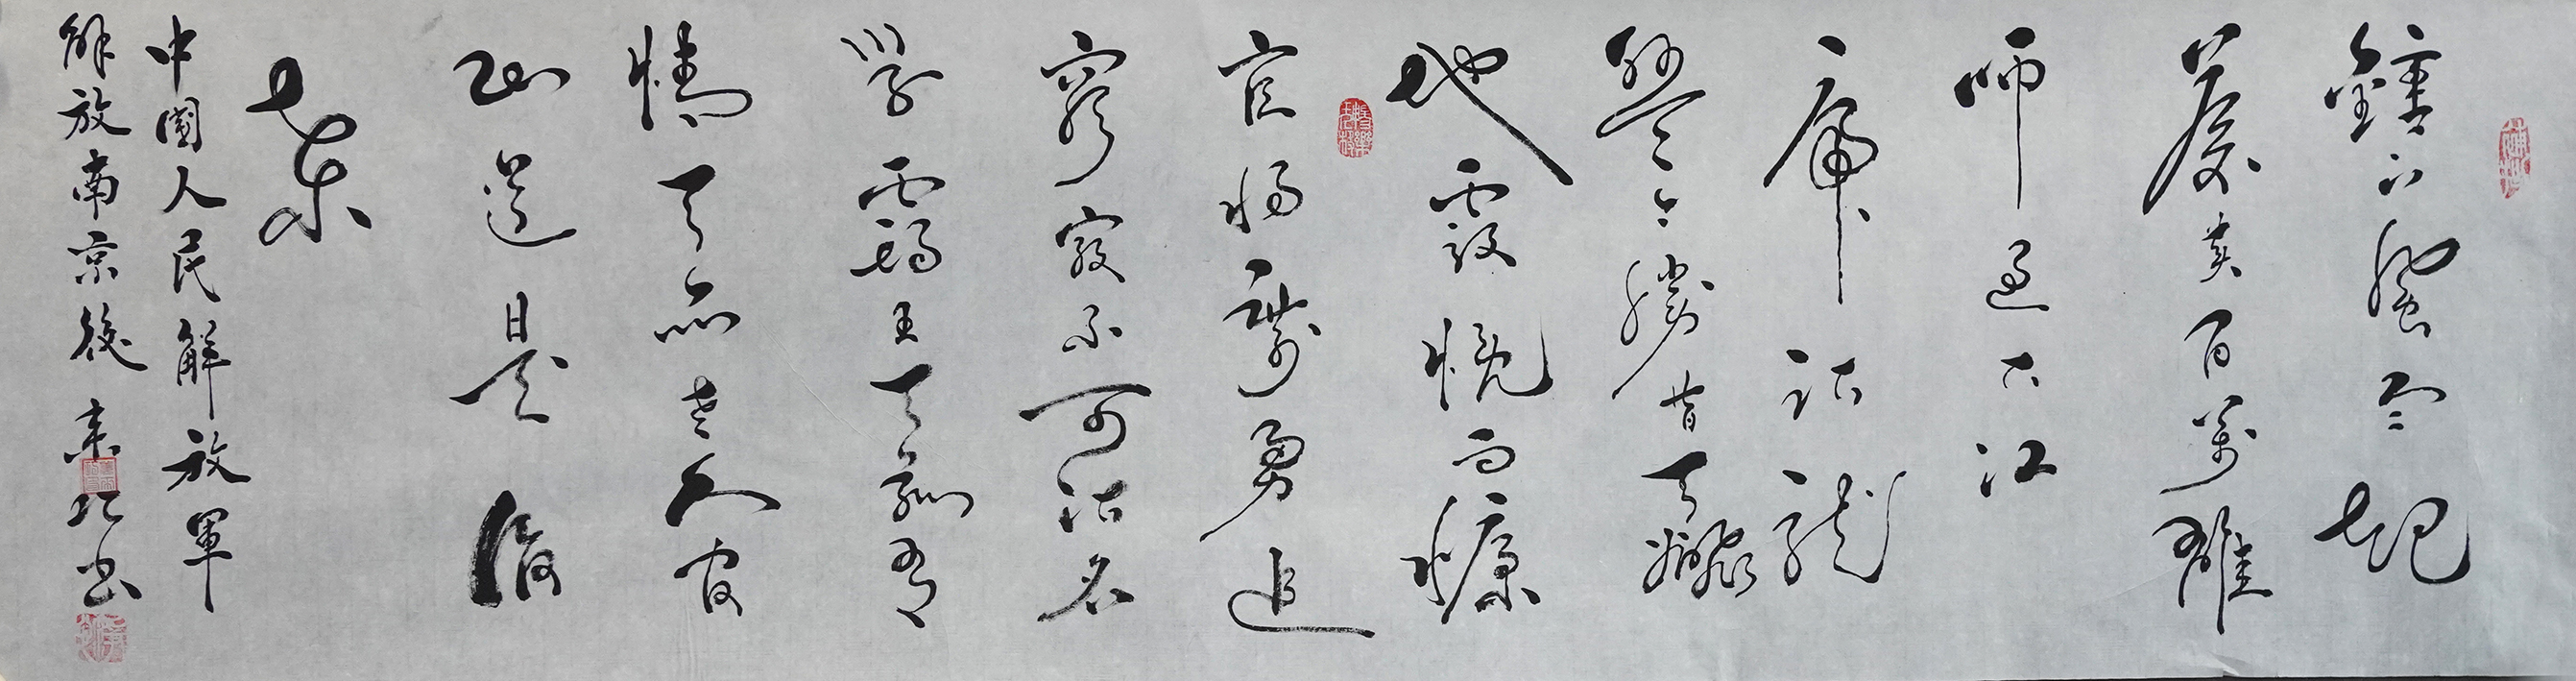 鍾山風雨起
蒼黃百萬雄
師過大江
虎踞龍
盤今勝昔天翻
地覆慨而慷
宜將剩勇追
窮寇不可沽名
學霸王天若有
情天亦老人間
正道是滄
桑
中國人民解放軍
解放南京後 書